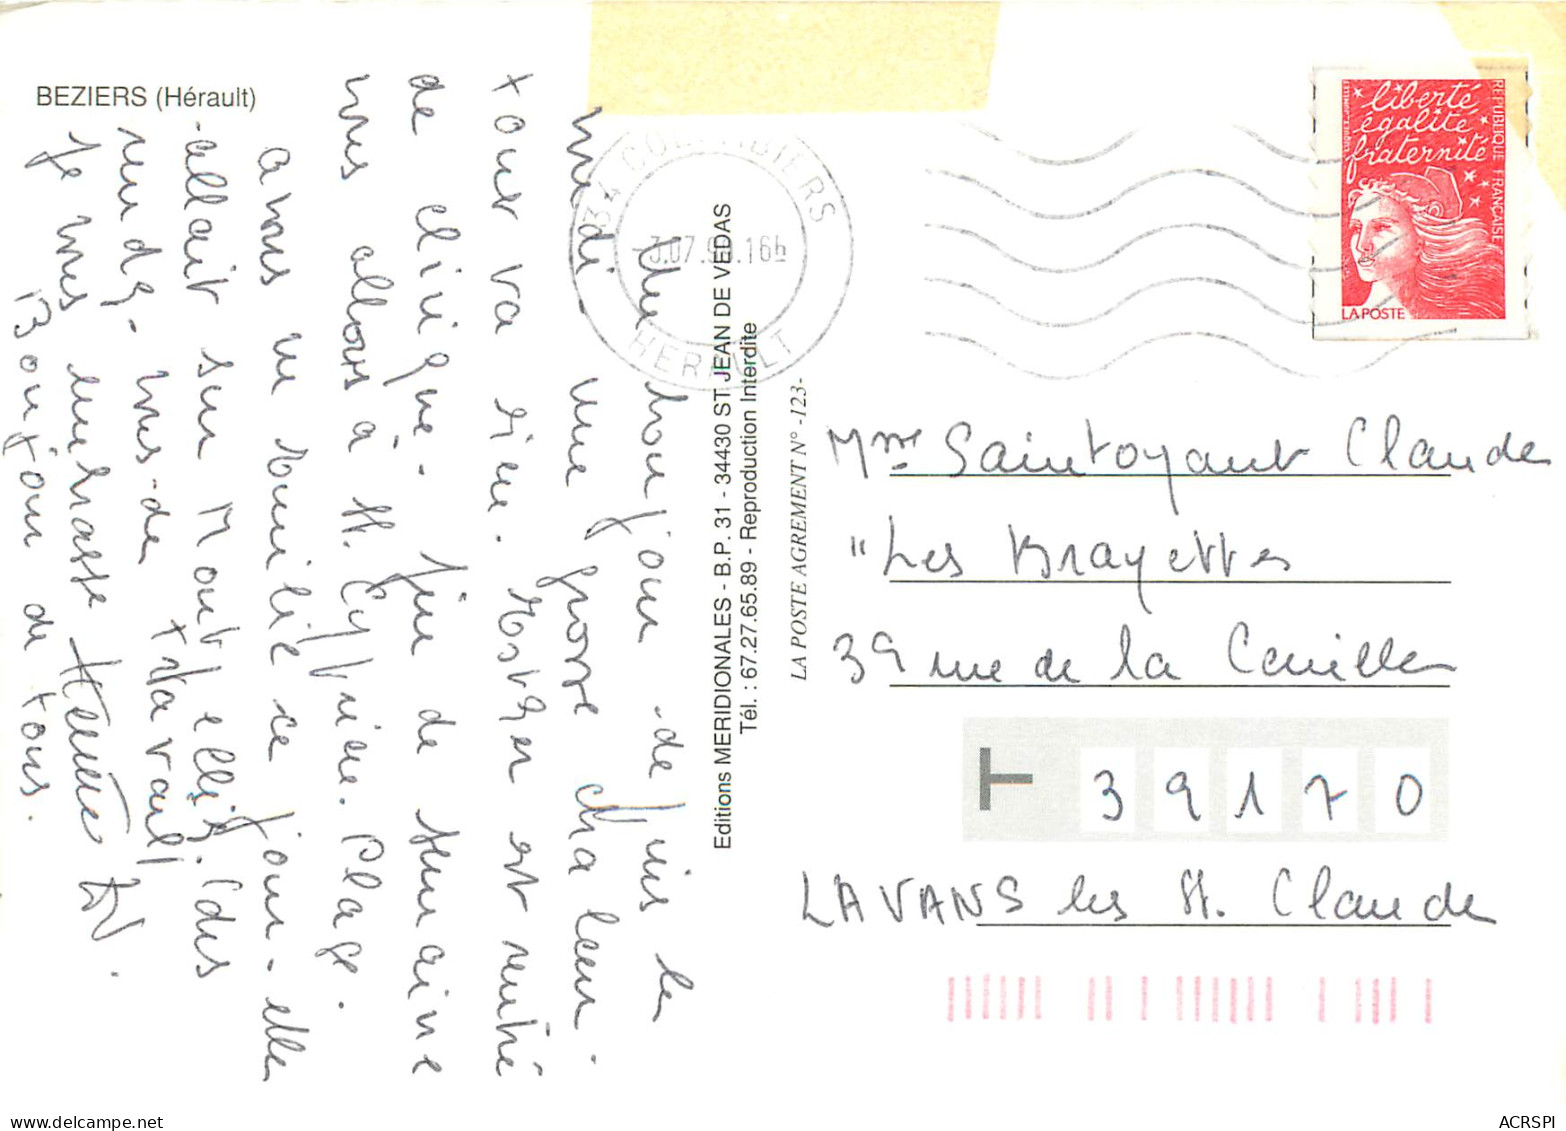 BEZIERS (Hérault)
Un bonjour de puis le
midi - une grosse chaleur.
tour va bien. est rentré
de clinique. fin de semaine
nous allons à St. Cyprien. Plage.
avons vu ce jour - elle
allait sur Montpellier. (des
travail)
Je vous embrasse
Bonjour de tous.
34 COLOMBIERS
HERAULT
Editions MERIDIONALES - B.P. 31 - 34430 ST JEAN DE VEDAS
Tél. : 67.27.65.89 - Reproduction Interdite
LA POSTE AGREMENT N° -123-
liberté
égalité
fraternité
REPUBLIQUE FRANÇAISE
LA POSTE
Mme Saintoyant Claude
"Les Brayettes
39 rue de la Cueille
T
39170
LAVANS les St. Claude
ACRSPI